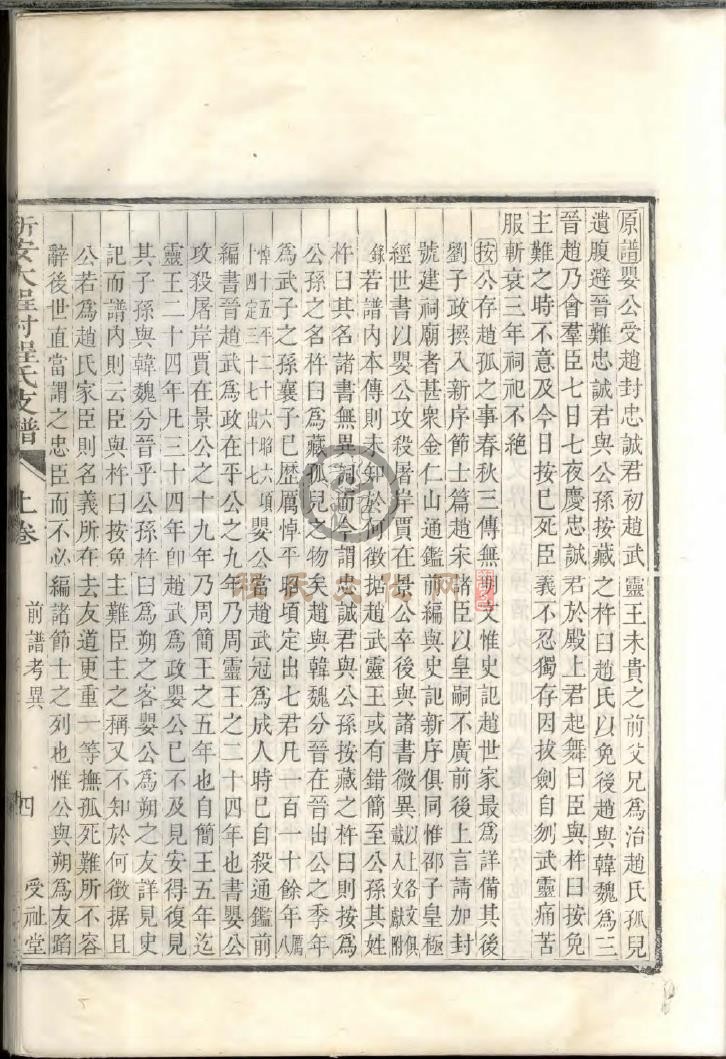 原譜嬰公受趙封忠誠君初趙武靈王未貴之前父兄爲治趙氏孤兒
遺腹避晉難忠誠君與公孫按藏之杵曰趙氏以免後趙與韓魏爲三
晉趙乃會羣臣七日七夜慶忠誠君於殿上君起舞曰臣與杵曰按免
主難之時不意及今日按已死臣義不忍獨存因拔劍自刎武靈痛苦
服斬衰三年祠祀不絕
按公存趙孤之事春秋三傳無明文惟史記趙世家最爲詳備其後
劉子政撰入新序節士篇趙宋諸臣以皇嗣不廣前後上言請加封
號建祠廟者甚衆金仁山通鑑前編與史記新序俱同惟邵子皇極
經世書以嬰公攻殺屠岸賈在景公卒後與諸書微異以上各文俱載入文獻附
錄若譜內本傳則未知於何徵據趙武靈王或有錯簡至公孫其姓
杵曰其名諸書無異詞而今謂忠誠君與公孫按藏之杵曰則按爲
公孫之名杵曰爲藏孤兒之物矣趙與韓魏分晉在晉出公之季年
爲武子之孫襄子已歷厲悼平昭頃定出七君凡一百一十餘年厲八
悼十五平二十六昭六頃十四定三十七出十七嬰公當趙武冠爲成人時已自殺通鑑前
編書晉趙武爲政在平公之九年乃周靈王之二十四年也書嬰公
攻殺屠岸賈在景公之十九年乃周簡王之五年也自簡王五年迄
靈王二十四年凡三十四年卽趙武爲政嬰公已不及見安得復見
其子孫與韓魏分晉乎公孫杵曰爲朔之客嬰公爲朔之友詳見史
記而譜內則云臣與杵曰按免主難臣主之稱又不知於何徵据且
公若爲趙氏家臣則名義所在去友道更重一等撫孤死難所不容
辭後世直當謂之忠臣而不必編諸節士之列也惟公與朔爲友蹈
新安大程村程氏支譜 上卷 前譜考異 四 受祉堂
程氏文化网